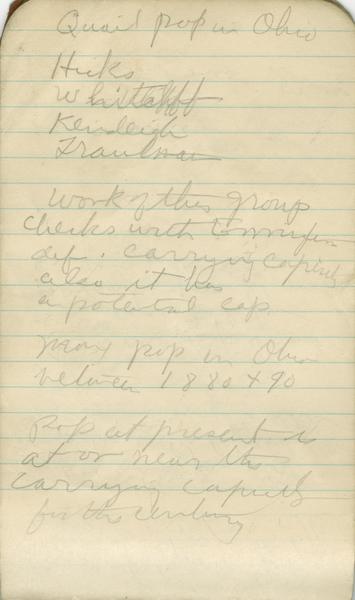 Quail pop in Ohio
Hicks
Kendeigh
Trautman
Work of this group
checks with
def. carrying capacity
also it has
a potential cap.
max pop in Ohio
between 1880 & 90
Pop at present is
at or near the
carrying capacity
for the century